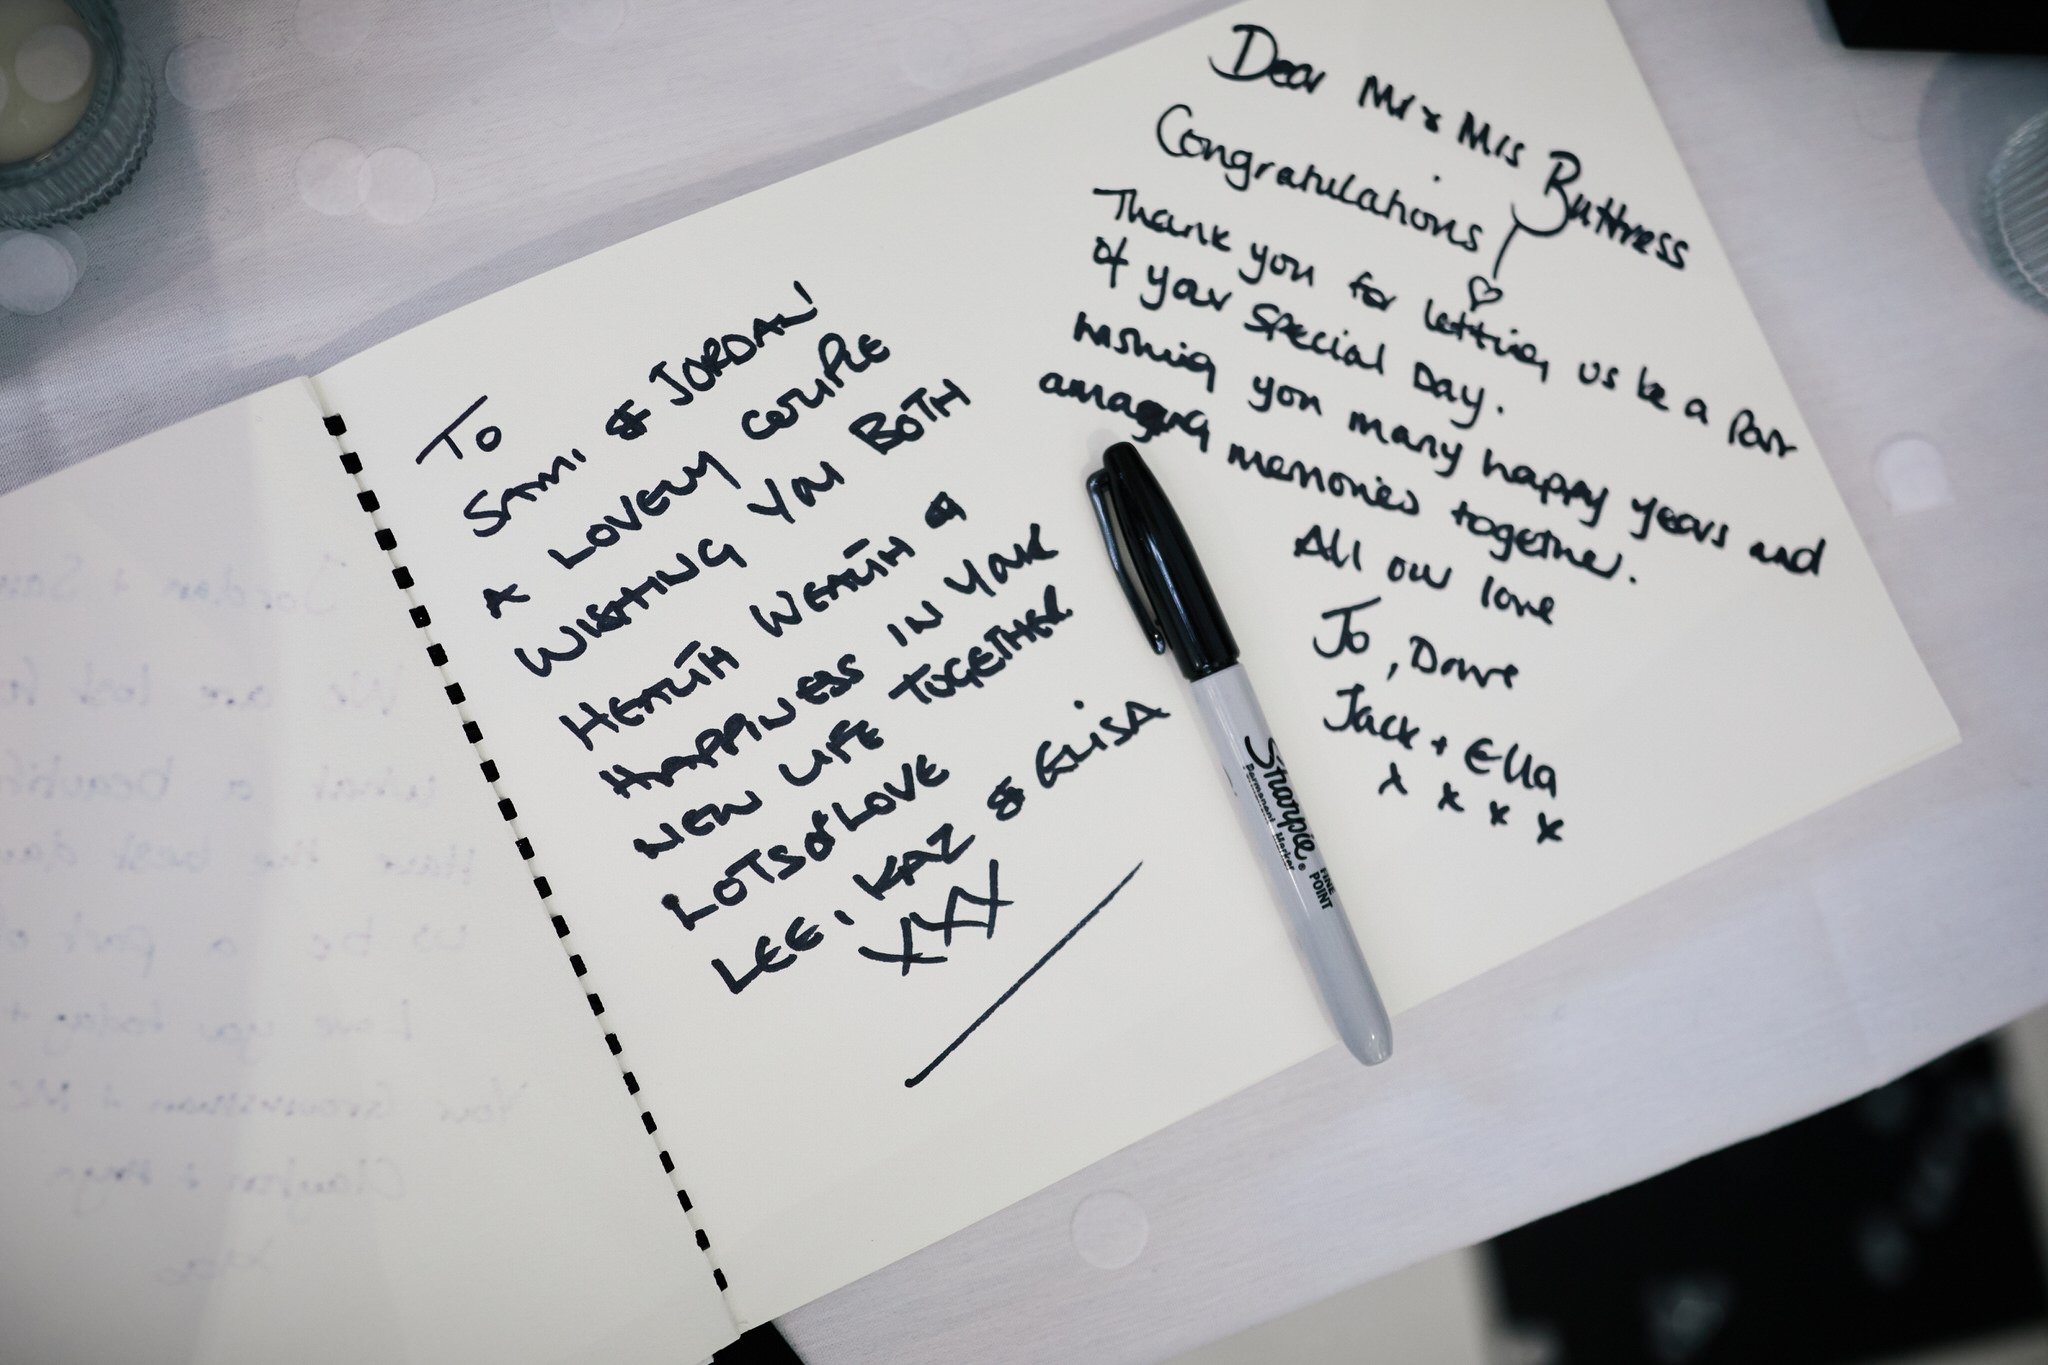 TO
SAMI & JORDAN
A LOVELY COUPLE
WISHING YOU BOTH
HEALTH WEALTH &
HAPPINESS IN YOUR
NEW LIFE TOGETHER
LOTS OF LOVE
LEE, KAZ & ELISA
XXX
Dear Mr & Mrs Buttress
Congratulations
Thank you for letting us be a Part
of your Special Day.
wishing you many happy years and
amazing memories together.
All our love
Jo, Dave
Jack + Ella
x x x x
Sharpie®
Permanent Marker
FINE
POINT
Jordan + Sam
We are
what a beautif
Have the best day
us be a part of
Love you today +